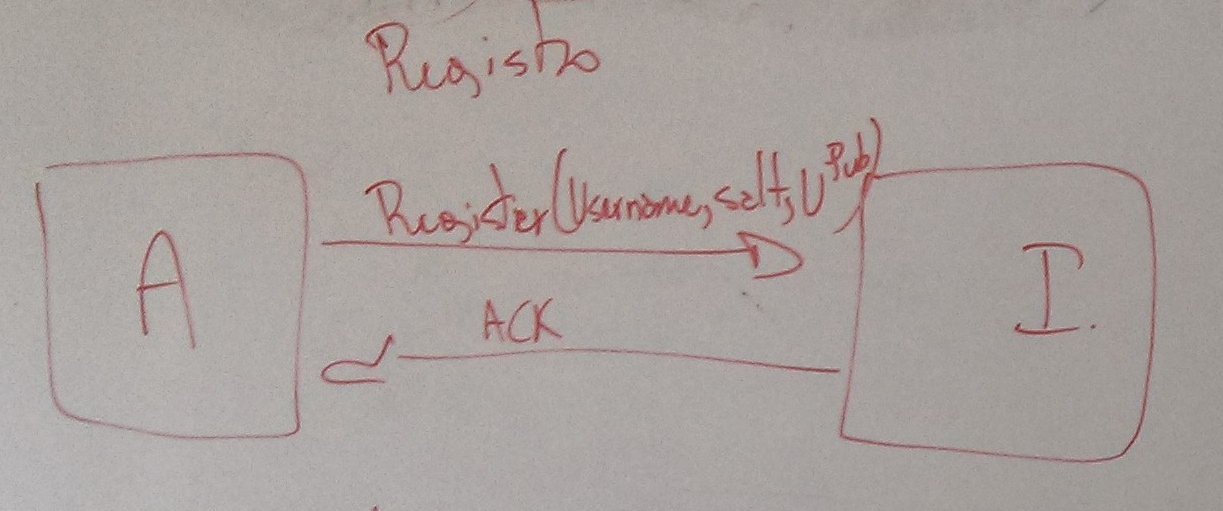 Registro
Register(Username, salt, U^Pub)
A
I.
ACK